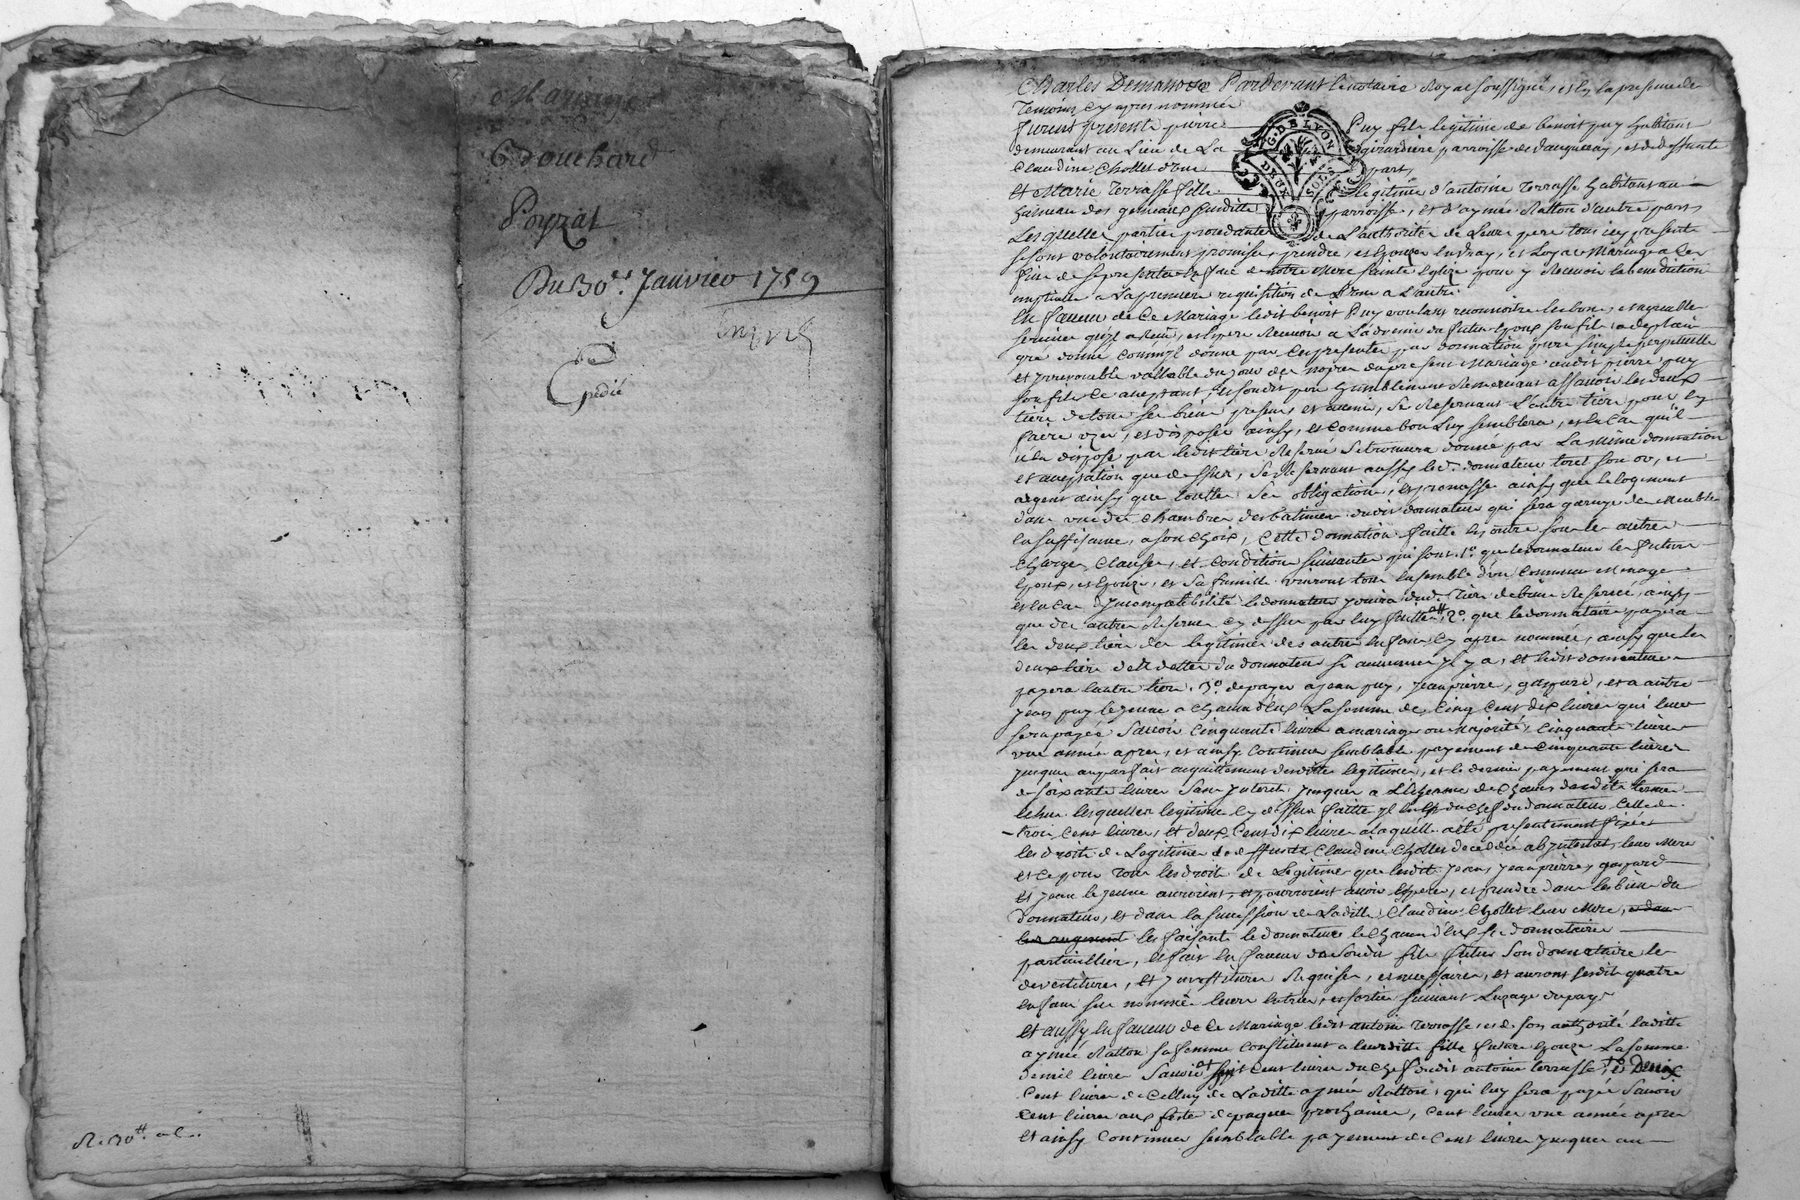 Mariage
Edouchard
Poyzat
Du 30.e Janvier 1759
Expédié
Charles Demanoux Pardevant le notaire Royal soussigné, et en la presence de
Temoins cy apres nommés
furent presents pierre Puy fils legitime de benoist puy habitant
demeurant au Lieu de La girardiere parroisse de vaugneray, et de deffunte
Claudine Chollet d'une part,
Et Marie Terrasse fille legitime d'antoine Terrasse habitant au
hameau des parroisse, et d'aymée Ratton d'autre part
Lesquelles partie procedantes de L'authorité de Leurs pere tous icy presents
se sont volontairement promises, prendre, et Epouser en vray, et Loyal Mariage a ces
fins de se presenter en face de notre Mere sainte Eglise pour y Recevoir la benediction
nuptialle a La premiere requisition de L'une a L'autre
En faveur de Ce Mariage ledit benoist Puy voulant reconnoitre les bons, et agreable
services qu'il a Reçu, et Espere Recevoir a L'avenir du futur Epoux son fils, a de plain
gré donné comm'il donne par Ces presentes par donnation pure simple perpetuelle
et Irrevocable vallable du jour de Noces du present Mariage audit pierre puy
son fils Ce acceptant, et son dit pere humblement Remerciant assavoir les deux
tiers de tous ses biens presents et avenir, Se Reservant L'autre tiers pour en
faire user, et disposer ainsy, et comme bon Luy semblera, et en Cas qu'il
n'en dispose pas ledit tiers Reservé se trouvera donné par La même donnation
et acceptation que dessus, Se Reservant aussy led. donnateur tout son or, et
argent ainsy que toutes Ses obligations, et promesse ainsy que le logement
dans une des chambres des batimens dudit donnateur qui sera garnye de Meubles
en suffisance, a son choix, Cette donnation faitte en outre sous les autres
Charges, Clauses, et Condition suivantes qui sont 1.o que le donnateur les futurs
Epoux, et Epouze, et sa famille vivront tous ensemble d'un Commun Menage
et en cas d'Incompatibilité le donnateur jouira dud. Tiers de biens Reservé, ainsy
que des autres Reserves cy dessus par luy faittes, 2.o que le donnataire payera
les deux tiers des legitimes des autres Enfans cy apres nommés, ainsy que les
deux tiers des dettes du donnateur si aucunes Il y a, et ledit donnateur
payera l'autre tiers. 3.o de payer a jean puy, jean pierre, gaspard, et a autre
jean puy le jeune a chacun d'Eux La somme de Cinq Cent dix livres qui leur
sera payée Savoir Cinquante livres a mariage ou Majorité, Cinquante livres
une année apres, et ainsy Continuer semblable payement de Cinquante livres
jusques au parfait acquittement desditte legitimes, et le dernier payement qui sera
de soixante livres San Interets jusques a L'Echeance de Chacun desdits termes
Echus lesquelles legitimes cy dessus faitte du chef du donnateur Celle de
trois Cent livres, et deux Cent dix livres a laquelle a été presentement fixée
les droits de Legitime de deffunte Claudine Chollet decedée ab intestat, leur Mere
et Ce pour Tous les droits de Legitime que lesdit jean, jean pierre, gaspard
et jean le jeune auroient, et pourroient avoir Esperer, et pretendre dans les biens du
donnateur, et dans la succession de Laditte Claudine Chollet leur Mere, et dans
leur augment les faisants le donnateur le Chacun d'Eux ses donnataires
particulliers, et fait en faveur de sondit fils futur Son donnataire les
devestitures, et Investitures Requises, et necessaires, et auront lesdit quatre
enfans sus nommés leurs Entrées, et sorties suivant L'uzage du pays
Et aussy En faveur de Ce Mariage ledit antoine Terrasse, et de son authorité laditte
aymée Ratton sa femme constituent a leurditte fille future Epouze La somme
de mil livres Savoir huit Cent livres du Chef dudit antoine terrasse, et Deux
Cent livres de Celluy de Laditte aymée Ratton, qui luy sera payée Savoir
Cent livres aux festes de paques prochaines, Cent livres une année apres
et ainsy Continuer semblable payement de Cent livres jusques au